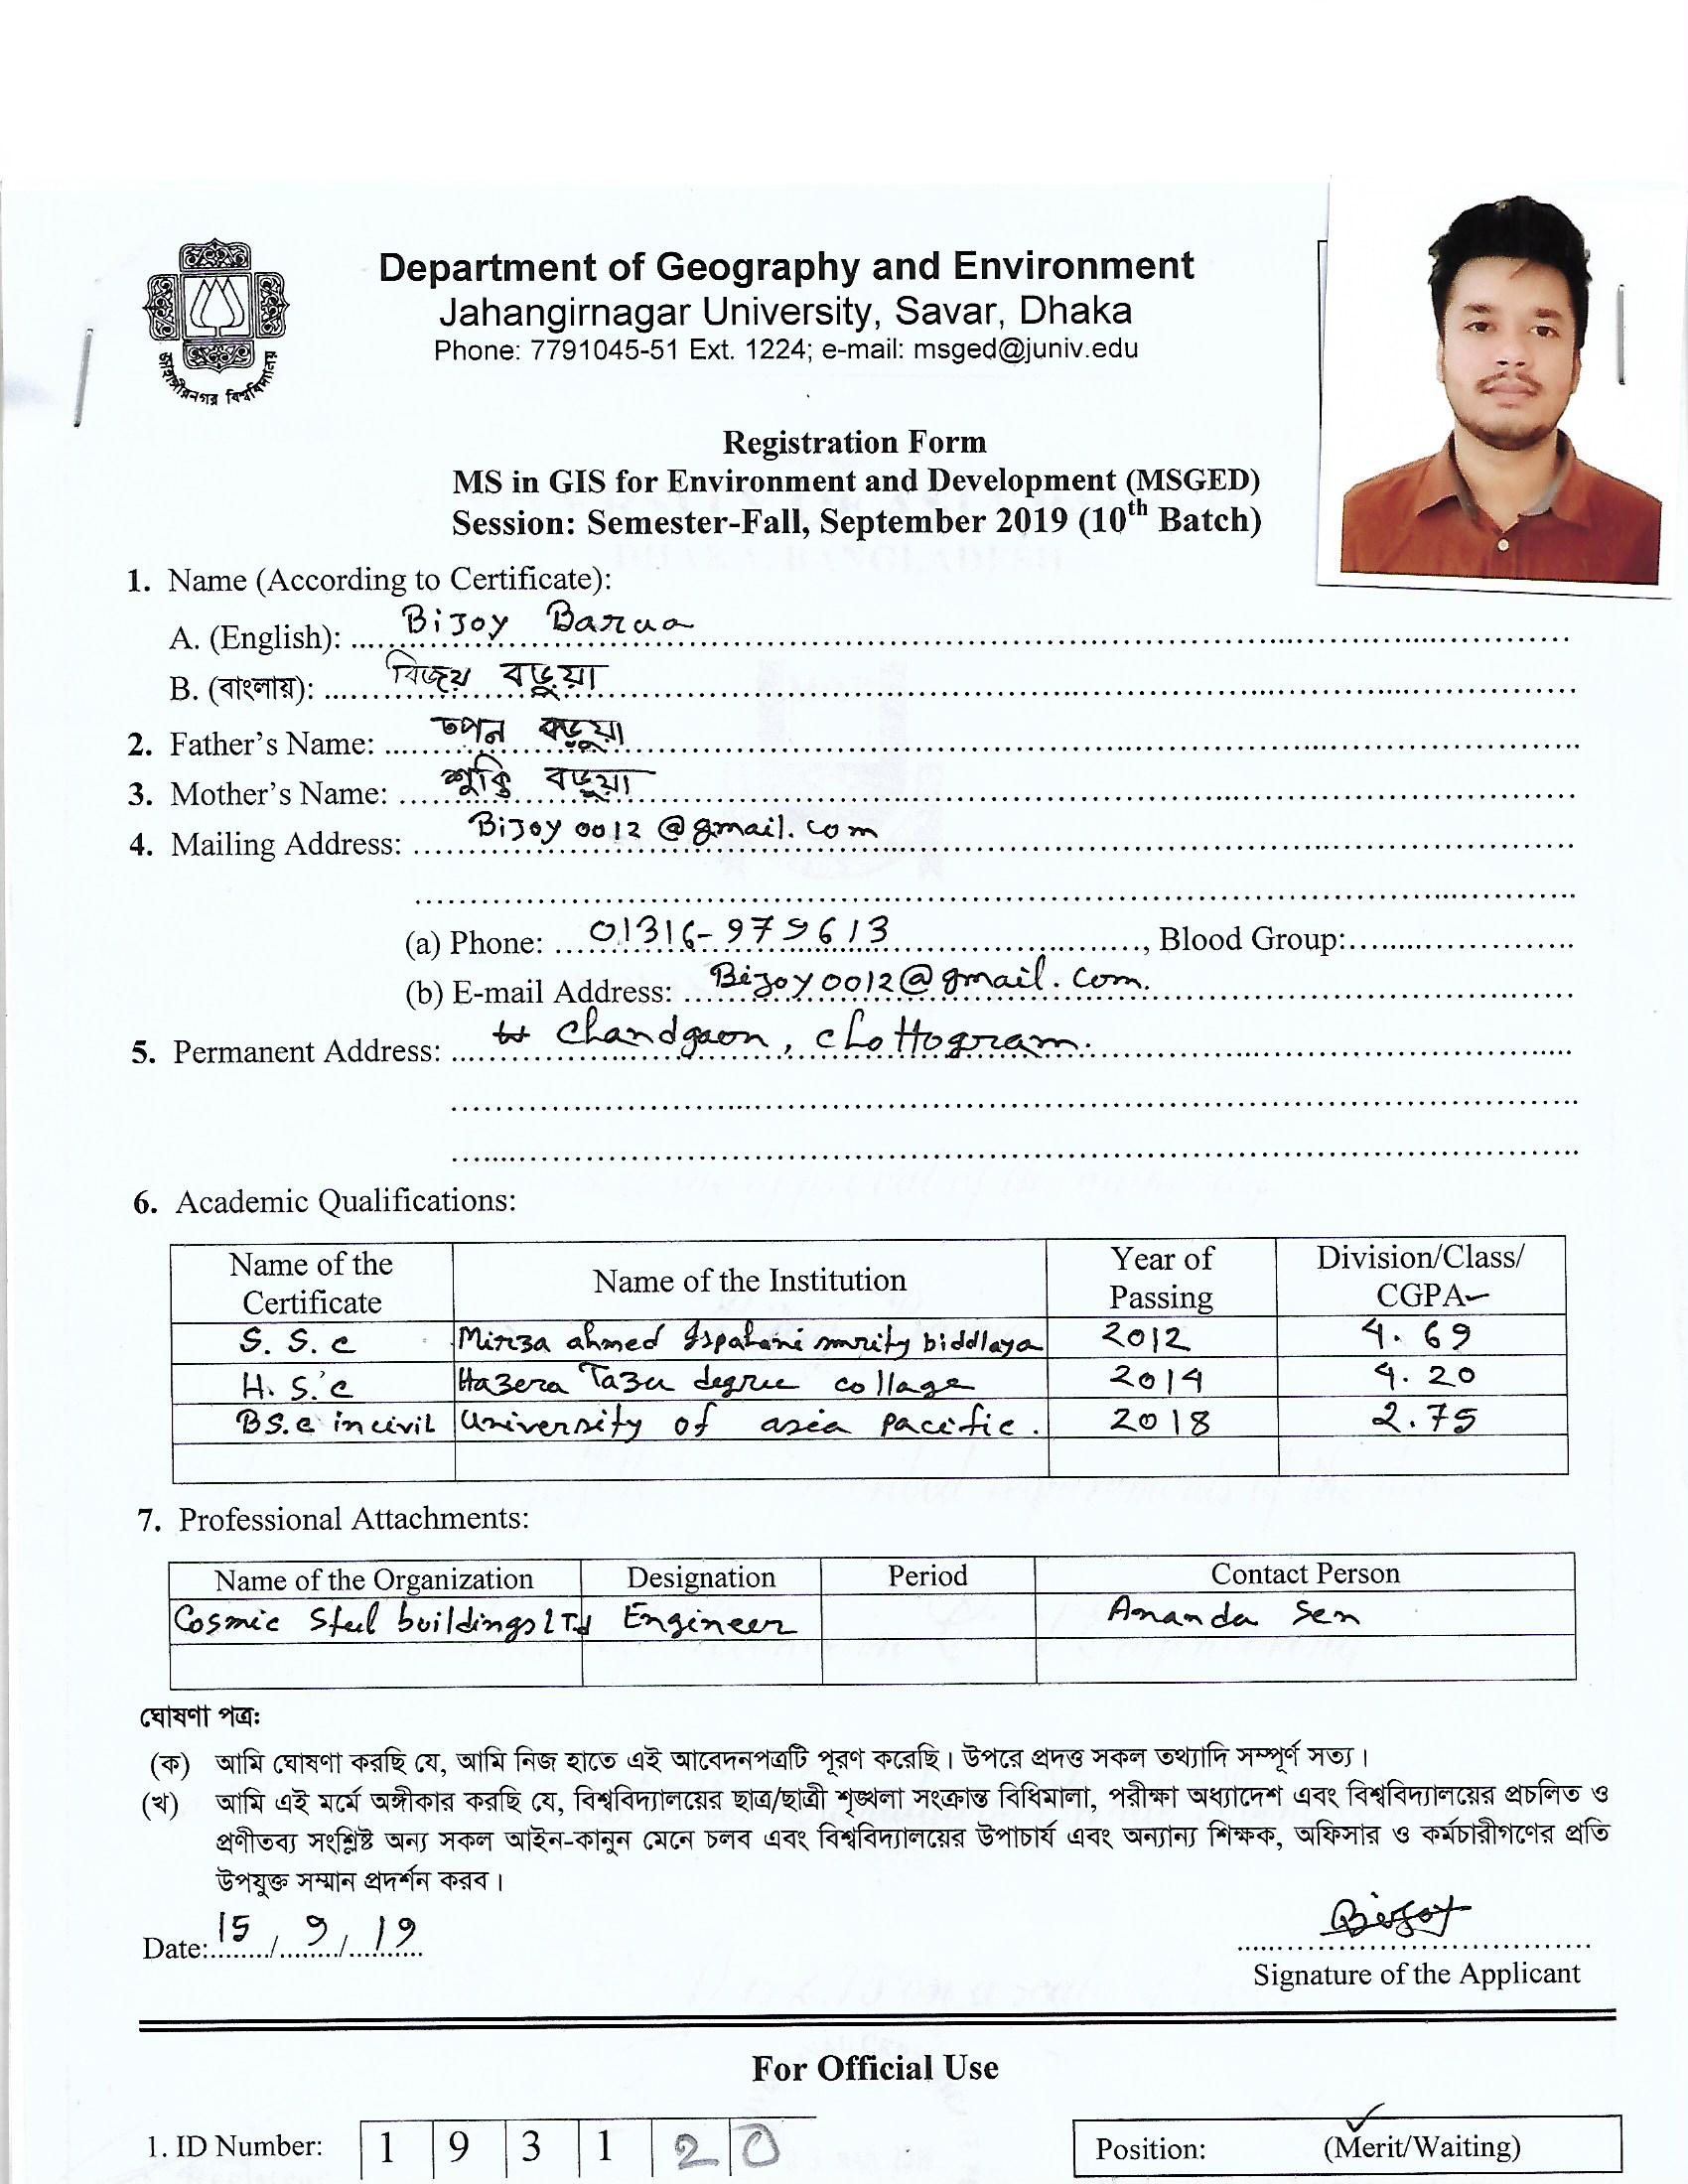 জাহাঙ্গীরনগর বিশ্ববিদ্যালয়
Department of Geography and Environment
Jahangirnagar University, Savar, Dhaka
Phone: 7791045-51 Ext. 1224; e-mail: msged@juniv.edu
Registration Form
MS in GIS for Environment and Development (MSGED)
Session: Semester-Fall, September 2019 (10th Batch)
1. Name (According to Certificate):
A. (English): Bijoy Barua
B. (বাংলায়): বিজয় বড়ুয়া
2. Father's Name: তপন বড়ুয়া
3. Mother's Name: শুক্তি বড়ুয়া
4. Mailing Address: Bijoy0012@gmail.com
(a) Phone: 01316-979613, Blood Group:
(b) E-mail Address: Bijoy0012@gmail.com.
5. Permanent Address: Chandgaon, chottogram.
6. Academic Qualifications:
Name of the Certificate Name of the Institution Year of Passing Division/Class/CGPA
S. S. c Mirza ahmed Ispahani smrity biddlaya 2012 4.69
H. S. c Hazera Tazu degree collage 2014 4.20
BS.c in civil University of asia pacific. 2018 2.75
7. Professional Attachments:
Name of the Organization Designation Period Contact Person
Cosmic Steel buildings LTd Engineer Ananda Sen
ঘোষণা পত্র:
(ক) আমি ঘোষণা করছি যে, আমি নিজ হাতে এই আবেদনপত্রটি পূরণ করেছি। উপরে প্রদত্ত সকল তথ্যাদি সম্পূর্ণ সত্য।
(খ) আমি এই মর্মে অঙ্গীকার করছি যে, বিশ্ববিদ্যালয়ের ছাত্র/ছাত্রী শৃঙ্খলা সংক্রান্ত বিধিমালা, পরীক্ষা অধ্যাদেশ এবং বিশ্ববিদ্যালয়ের প্রচলিত ও
প্রণীতব্য সংশ্লিষ্ট অন্য সকল আইন-কানুন মেনে চলব এবং বিশ্ববিদ্যালয়ের উপাচার্য এবং অন্যান্য শিক্ষক, অফিসার ও কর্মচারীগণের প্রতি
উপযুক্ত সম্মান প্রদর্শন করব।
Date: 15/9/19
Bijoy
Signature of the Applicant
For Official Use
1. ID Number: 1 9 3 1 2 0
Position: (Merit/Waiting)